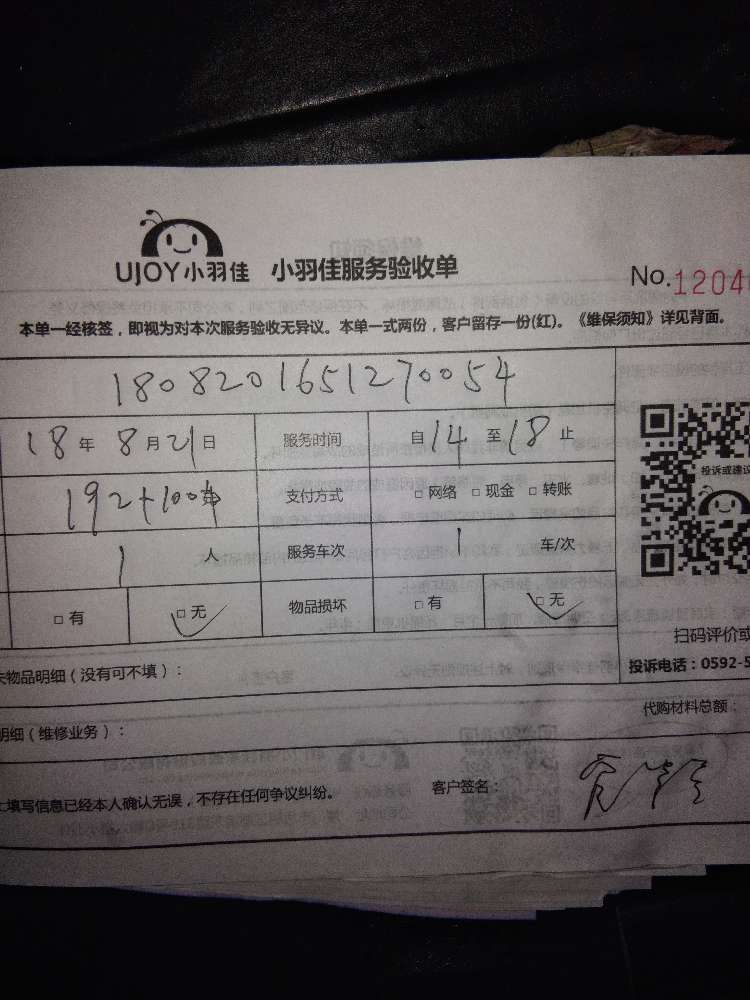 UJOY小羽佳 小羽佳服务验收单
No.1204
本单一经核签，即视为对本次服务验收无异议。本单一式两份，客户留存一份(红)。《维保须知》详见背面。
1808201651270054
18年8月21日 服务时间 自14至18止
192+100 支付方式 □网络 □现金 □转账
1人 服务车次 1车/次
□有 □无 物品损坏 □有 □无
投诉或建议
扫码评价或
物品明细（没有可不填）：
投诉电话：0592-5
明细（维修业务）：
代购材料总额：
填写信息已经本人确认无误，不存在任何争议纠纷。 客户签名：